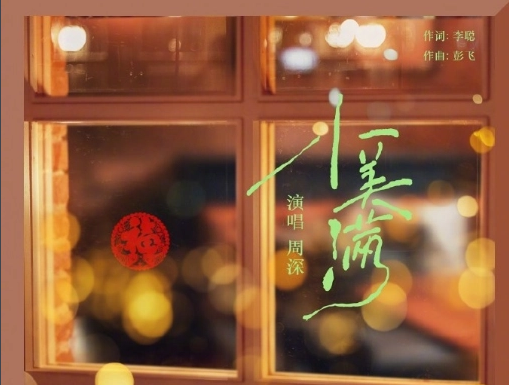 作词: 李聪
作曲: 彭飞
小美满
演唱 周深
福